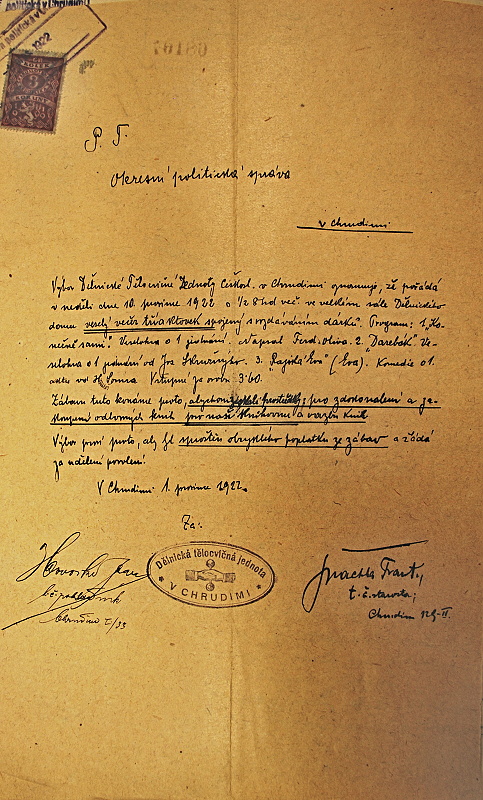 politická v Chrudimi
1922
KOLEK
08107
P. T.
Okresní politická správa
v Chrudimi
Výbor Dělnické Tělocvičné Jednoty Českosl. v Chrudimi oznamuje, že pořádá
v neděli dne 10. prosince 1922 o ½ 8 hod več. ve velkém sále Dělnického
domu veselý večer tří aktovek spojený s rozdáváním dárků. Program: 1. "Ko-
nečně sami". Veselohra o 1 jednání. Napsal Ferd. Oliva. 2. "Darebák" Ve-
selohra o 1 jednání od Jos. 3. "Rajská Eva" (Eva). Komedie o 1.
aktu od Vstupné za osobu 3·60
Zábavu tuto konáme proto, abychom získali prostředky pro zdokonalení a za-
koupení odborných knih pro naši knihovnu a vazbu knih
Výbor prosí proto, aby byl sproštěn obvyklého poplatku ze zábav a žádá
za udělení povolení.
V Chrudimi 1. prosince 1922.
Za:
Dělnická tělocvičná jednota
V CHRUDIMI
t. č. starosta,
Chrudim
Chrudim